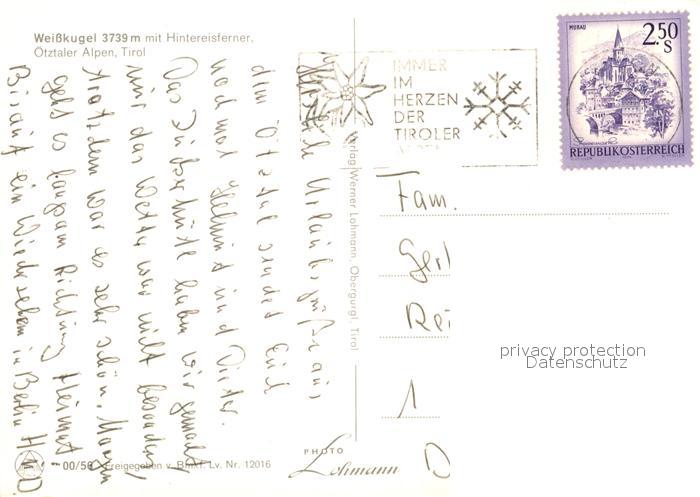 Weißkugel 3739 m mit Hintereisferner,
Ötztaler Alpen, Tirol
Herzliche Urlaubsgrüße aus
dem Ötztal sendet Euch
noch mal Helmut und Dieter.
Das haben wir gemacht,
nur das Wetter war nicht besonders,
trotzdem war es sehr schön. Morgen
geht es langsam Richtung Heimat.
Bis auf ein Wiedersehen in Berlin H. D.
00/56 Freigegeben v. BmfL Lv. Nr. 12016
Verlag Werner Lohmann, Obergurgl, Tirol
PHOTO
Lohmann
IMMER
IM
HERZEN
DER
TIROLER
MURAU
2.50
S
REPUBLIK ÖSTERREICH
Fam.
Gerl
Rei
1
D
privacy protection
Datenschutz